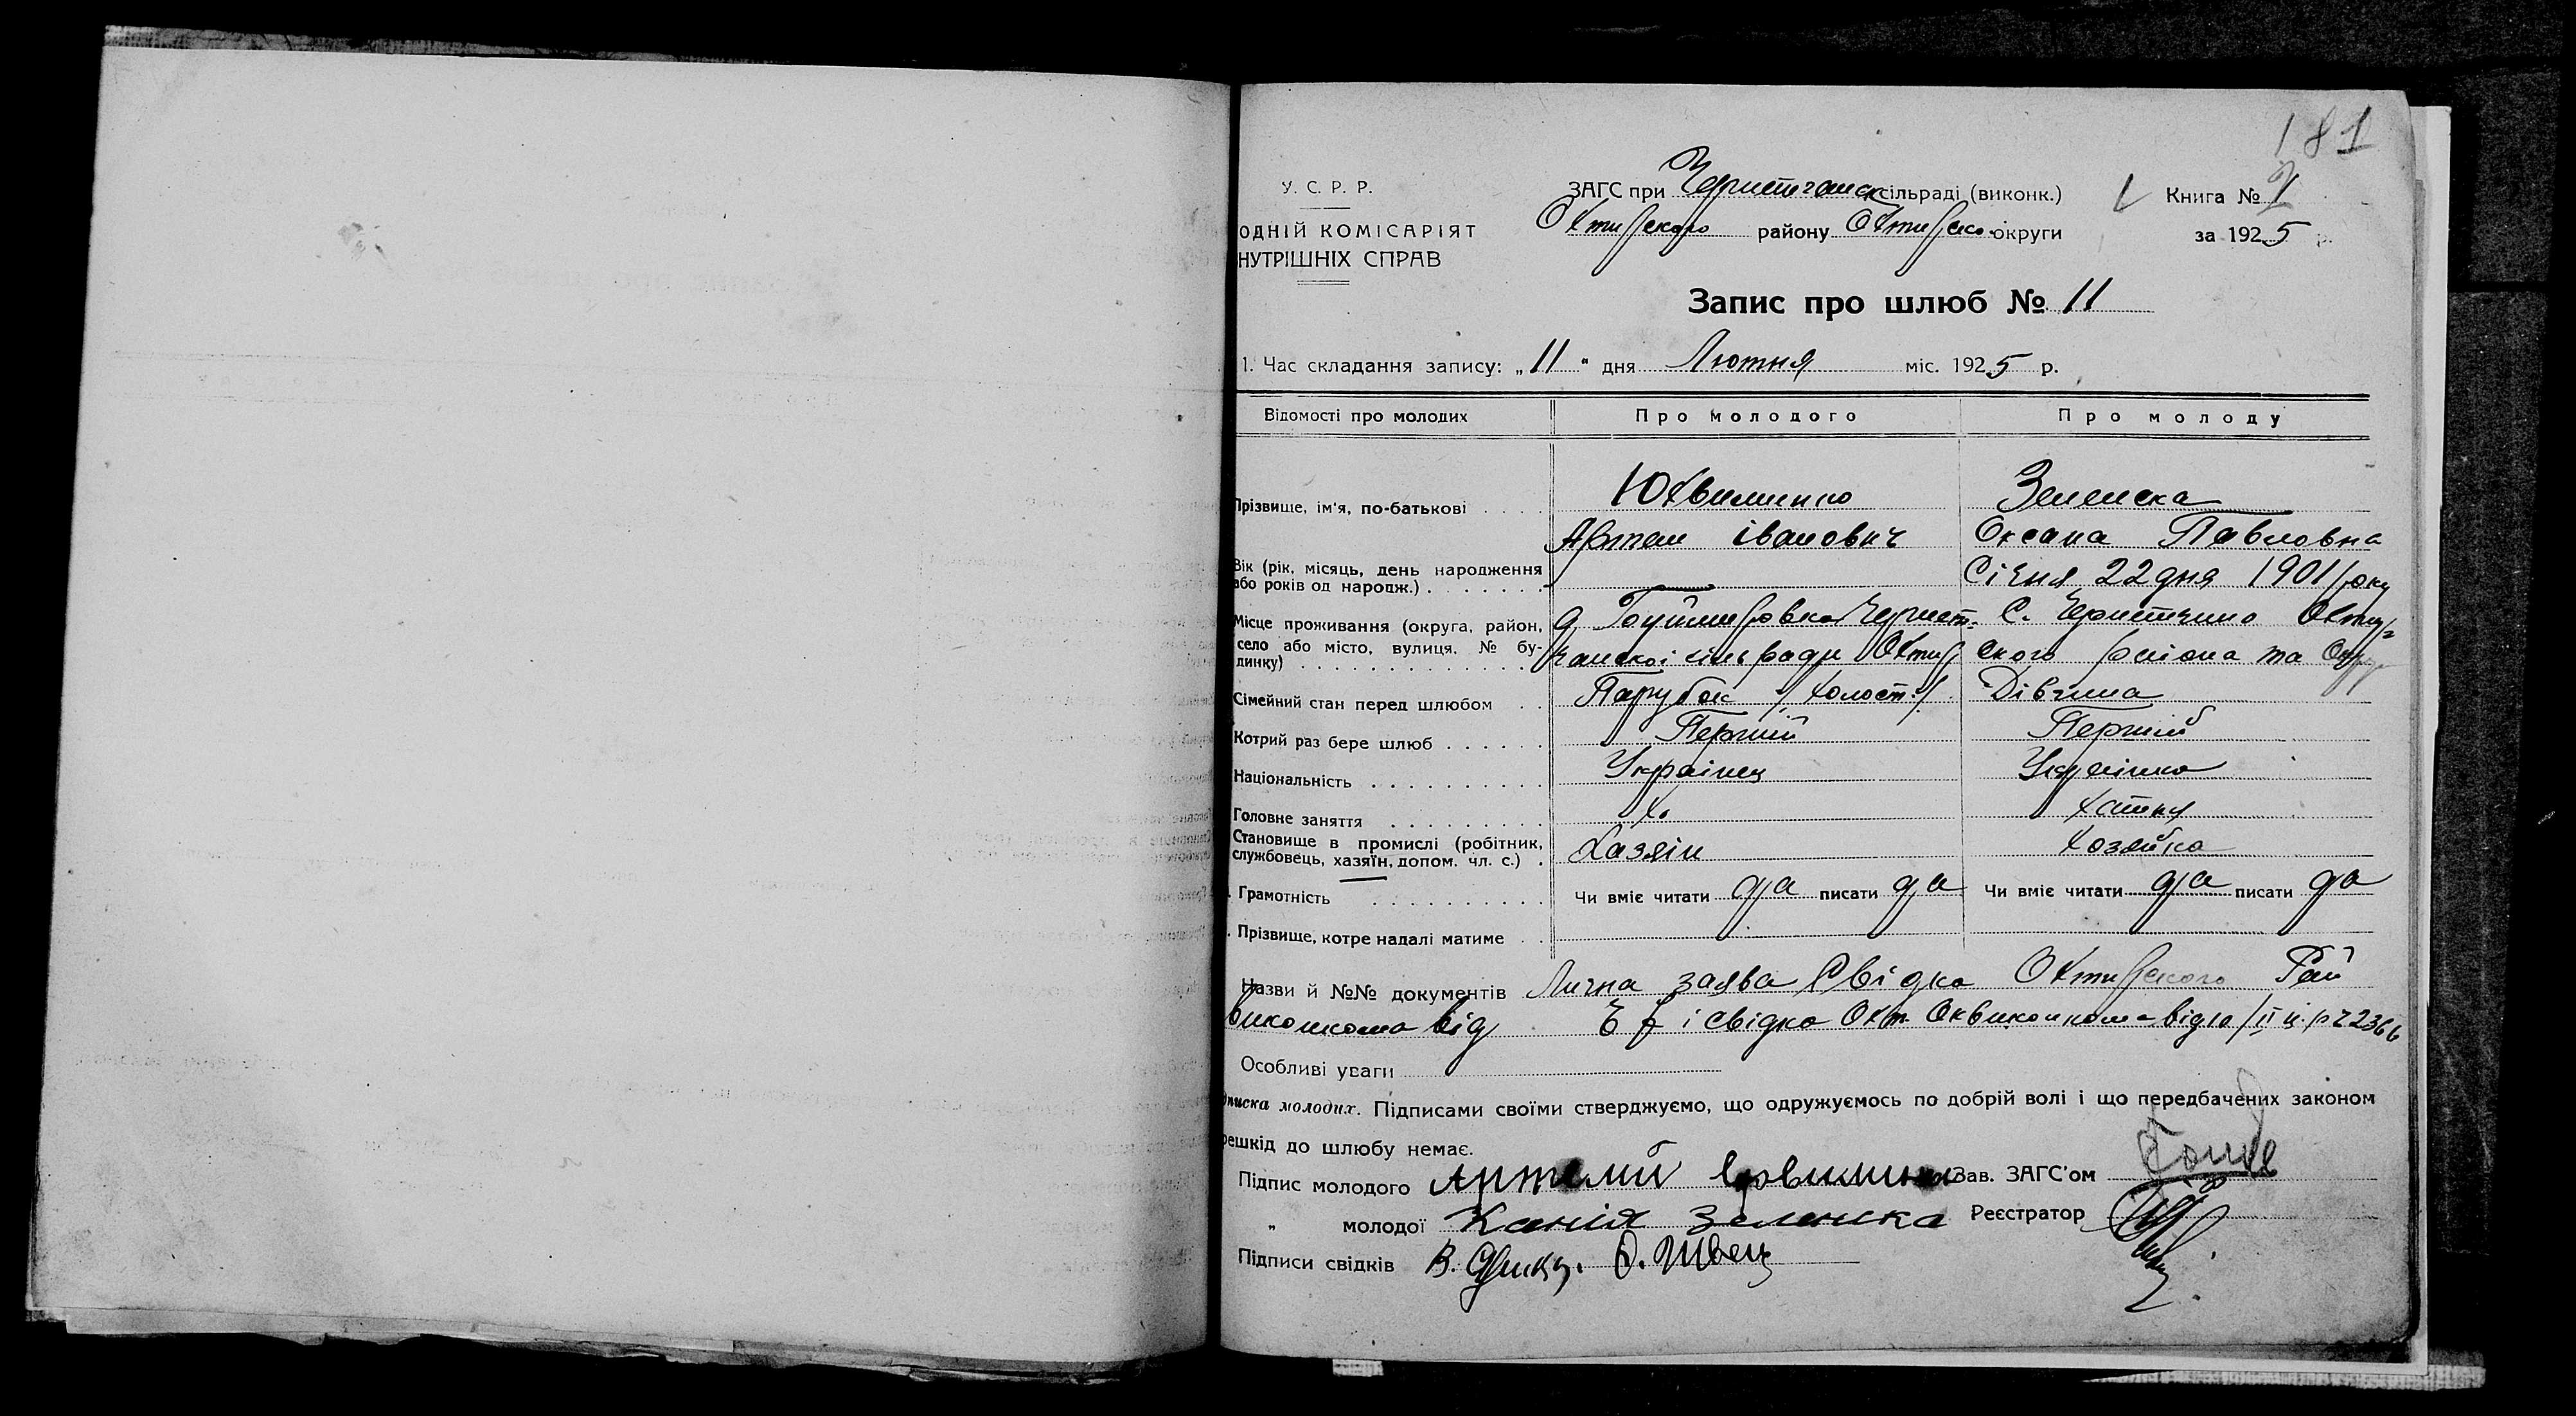 181
У. С. Р. Р.
ОДНІЙ КОМІСАРІЯТ
НУТРІШНІХ СПРАВ
ЗАГС при сільраді (виконк.)
Охтирского району Охтирско округи
Книга № 1
за 1925 р.
Запис про шлюб № 11
1. Час складання запису: „11“ дня Лютня міс. 1925 р.
Відомості про молодих Про молодого Про молоду
Прізвище, ім'я, по-батькові Юхвименко Зеленска
Артем Іванович Оксана Павловна
Вік (рік, місяць, день народження або років од народж.) Січня 22 дня 1901 року
Місце проживання (округа, район, село або місто, вулиця, № будинку)
чанскоі сільради Охтир ского раіона та Окру
Сімейний стан перед шлюбом Парубок /холост./ Дівчина
Котрий раз бере шлюб Перший Перший
Національність Українец Українка
Головне заняття Хо Хатня
Становище в промислі (робітник, службовець, хазяїн, допом. чл. с.) Хазяін хозяйка
. Грамотність Чи вміє читати да писати да Чи вміє читати да писати да
. Прізвище, котре надалі матиме
Назви й №№ документів Лична заява Свідка Охтирского Рай
виконкома від і свідка Охт. Оквиконкома від
Особливі уваги
дписка молодих. Підписами своїми стверджуємо, що одружуємось по добрій волі і що передбачених законом
решкід до шлюбу немає.
Підпис молодого Артемій Зав. ЗАГС'ом
„ молодої Зеленска Реєстратор
Підписи свідків В. О. Швец